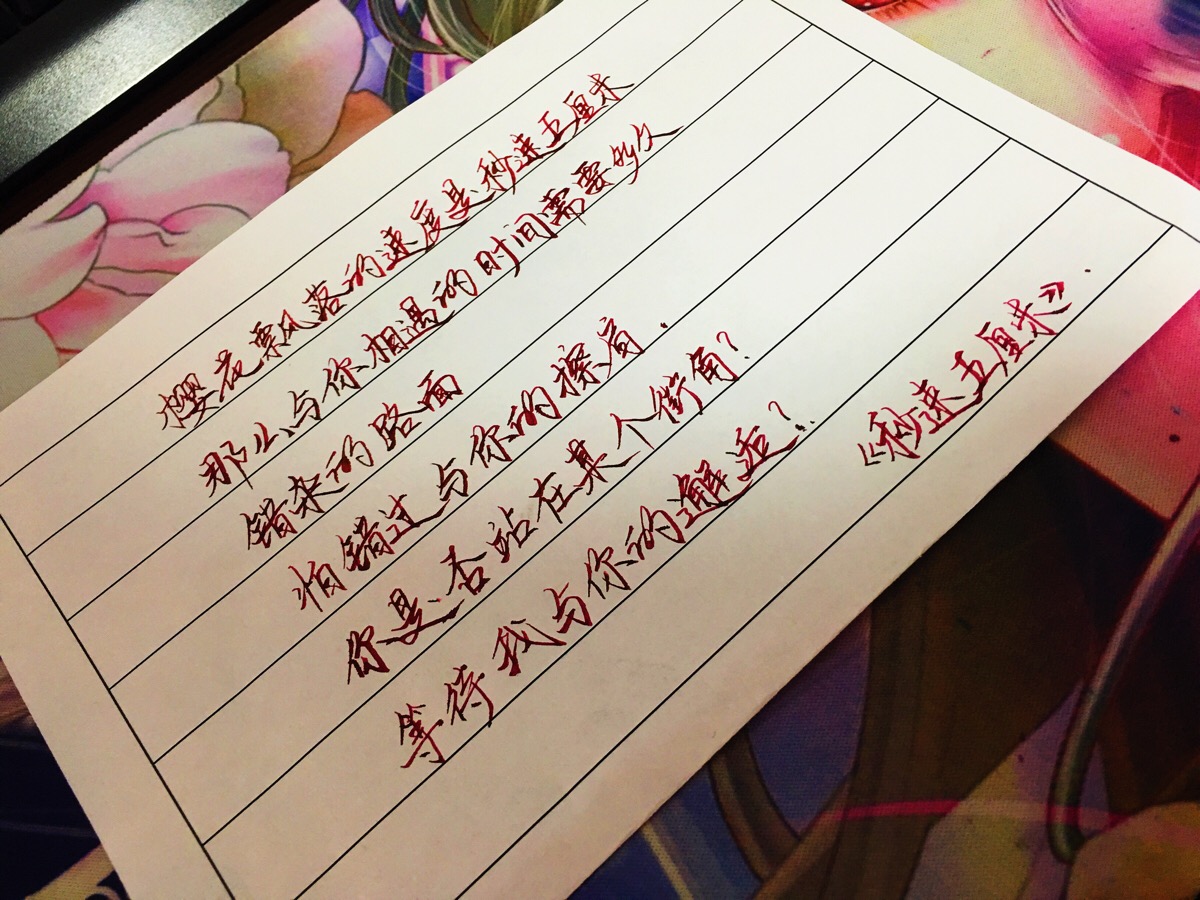 樱花飘落的速度是秒速五厘米
那么与你相遇的时间需要多久
错杂的路面
怕错过与你的擦肩.
你是否站在某个街角?
等待我与你的邂逅?
《秒速五厘米》.